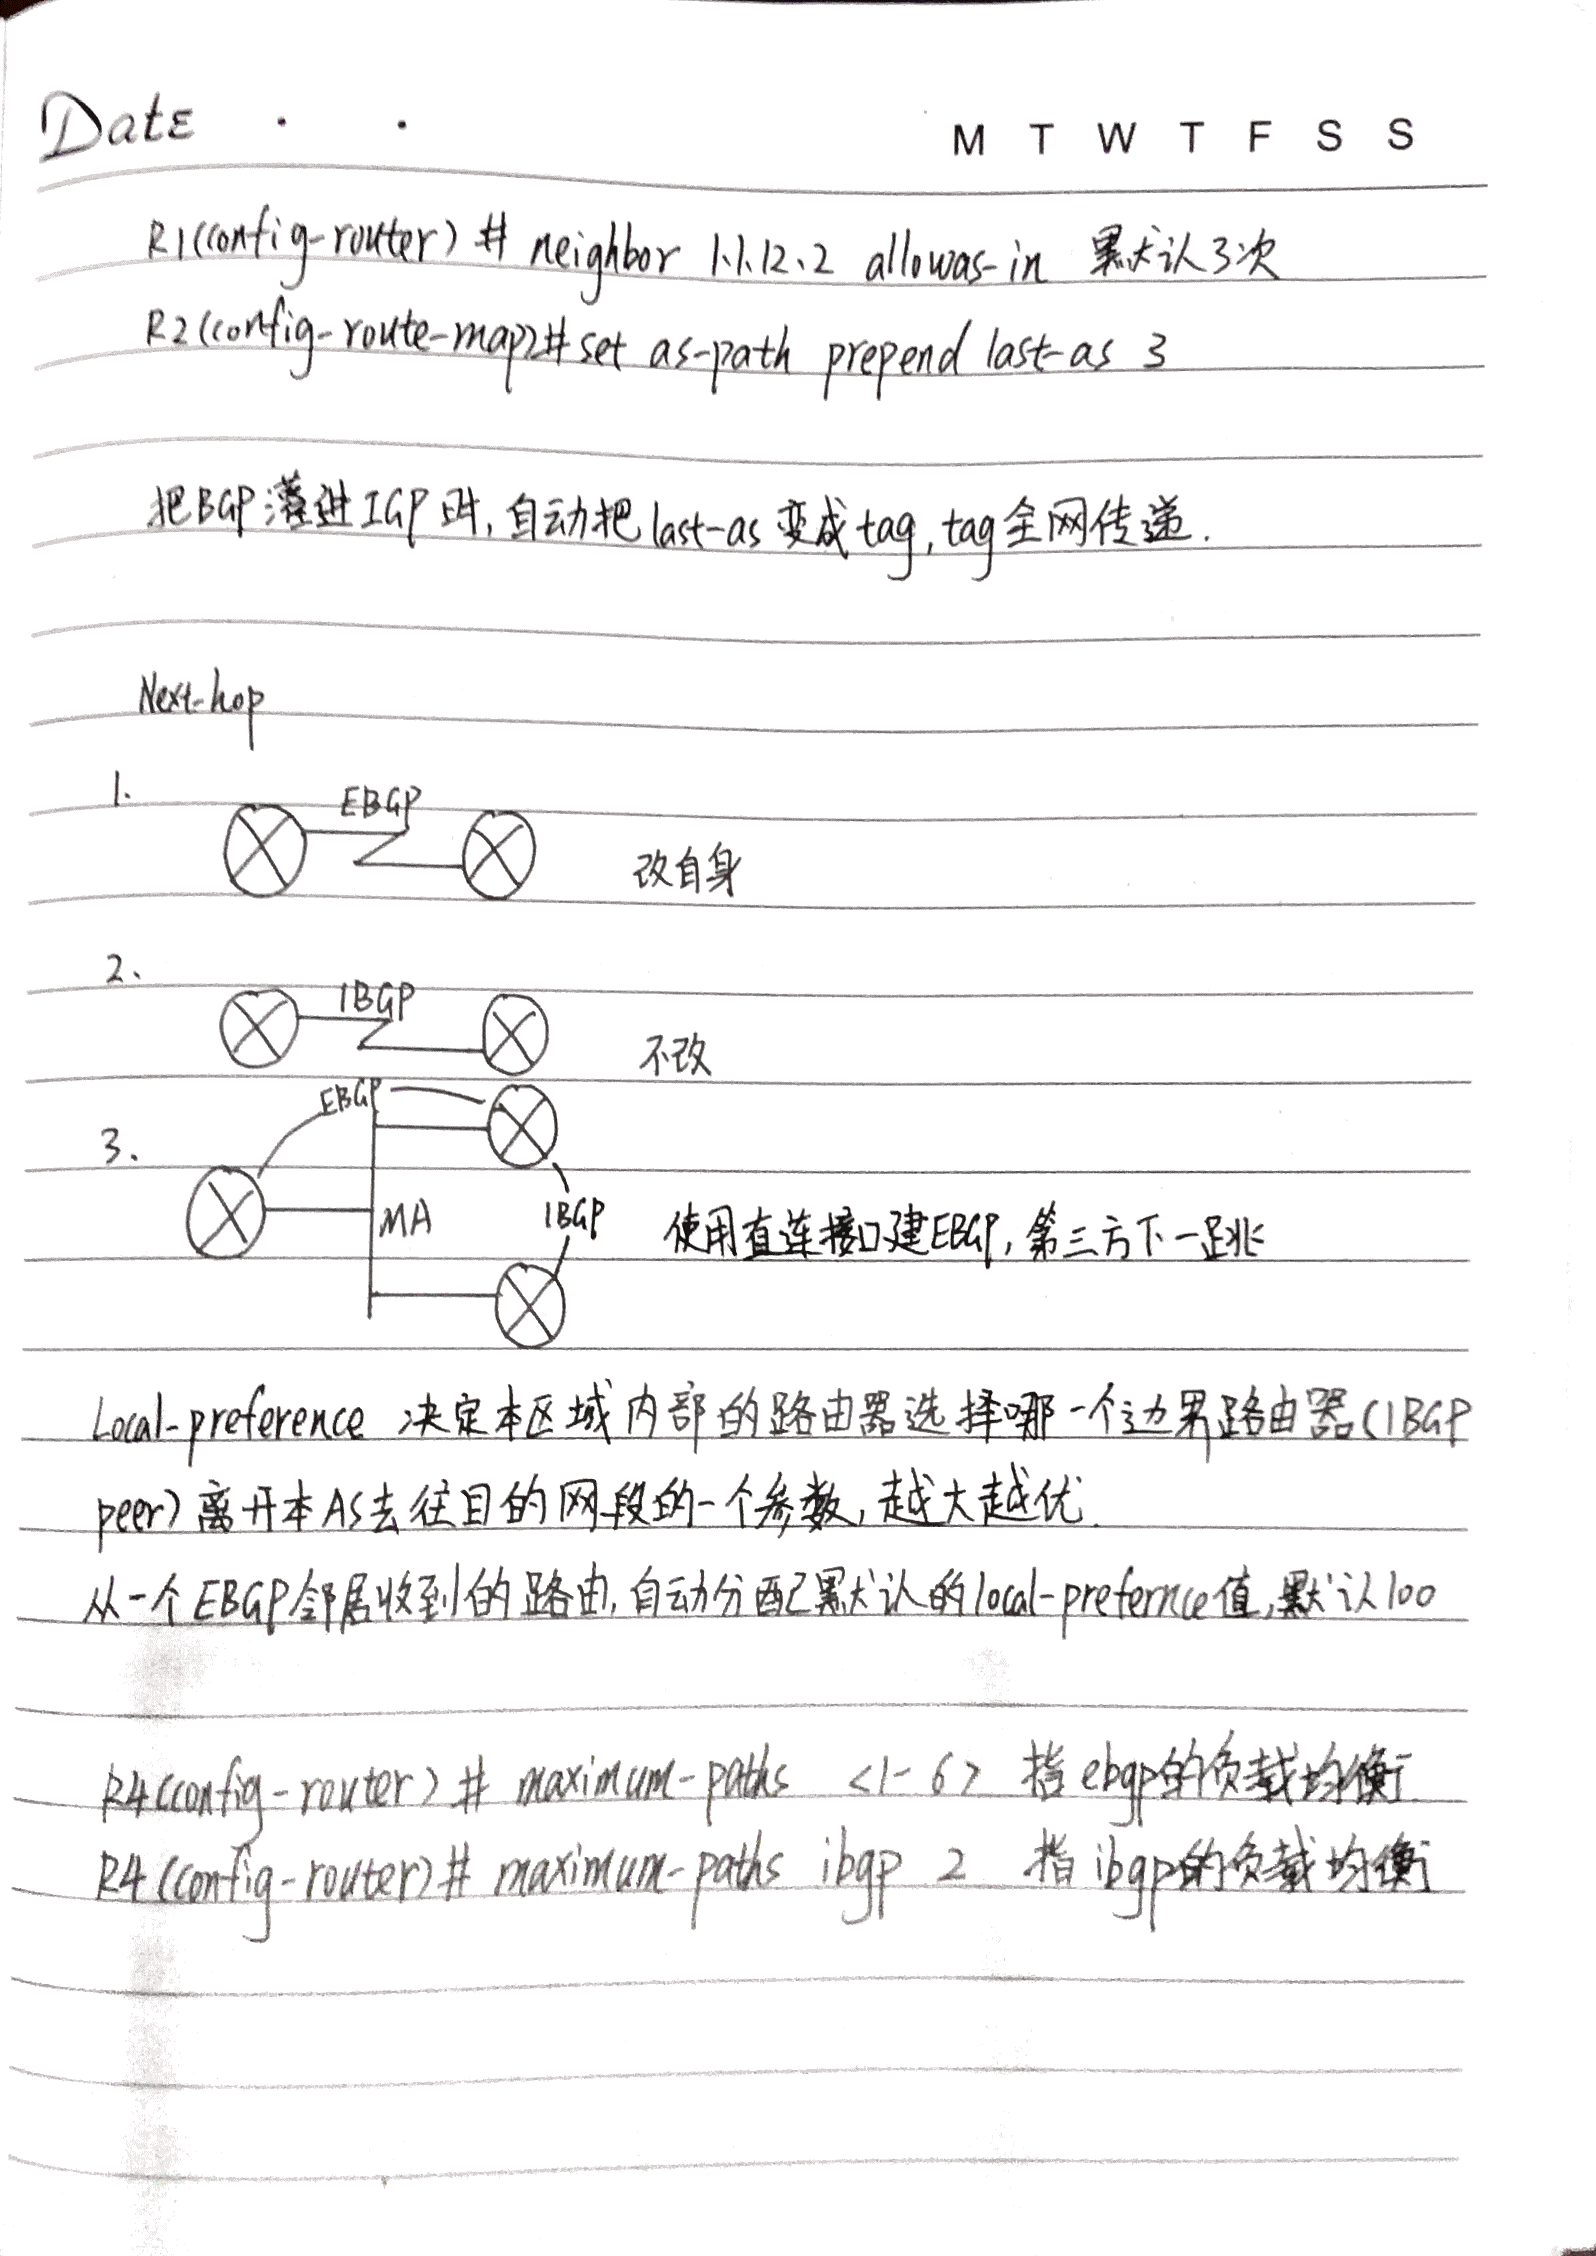 Date . .
M T W T F S S
R1(config-router)# neighbor 1.1.12.2 allowas-in 默认3次
R2(config-route-map)# set as-path prepend last-as 3
把BGP灌进IGP时,自动把last-as变成tag,tag全网传递.
Next-hop
1.
EBGP
改自身
2.
IBGP
不改
3.
EBGP
MA
IBGP
使用直连接口建EBGP,第三方下一跳
Local-preference 决定本区域内部的路由器选择哪一个边界路由器(IBGP
peer)离开本AS去往目的网段的一个参数,越大越优.
从一个EBGP邻居收到的路由,自动分配默认的local-prefernce值,默认100
R4(config-router)# maximum-paths <1-6> 指ebgp的负载均衡.
R4(config-router)# maximum-paths ibgp 2 指ibgp的负载均衡